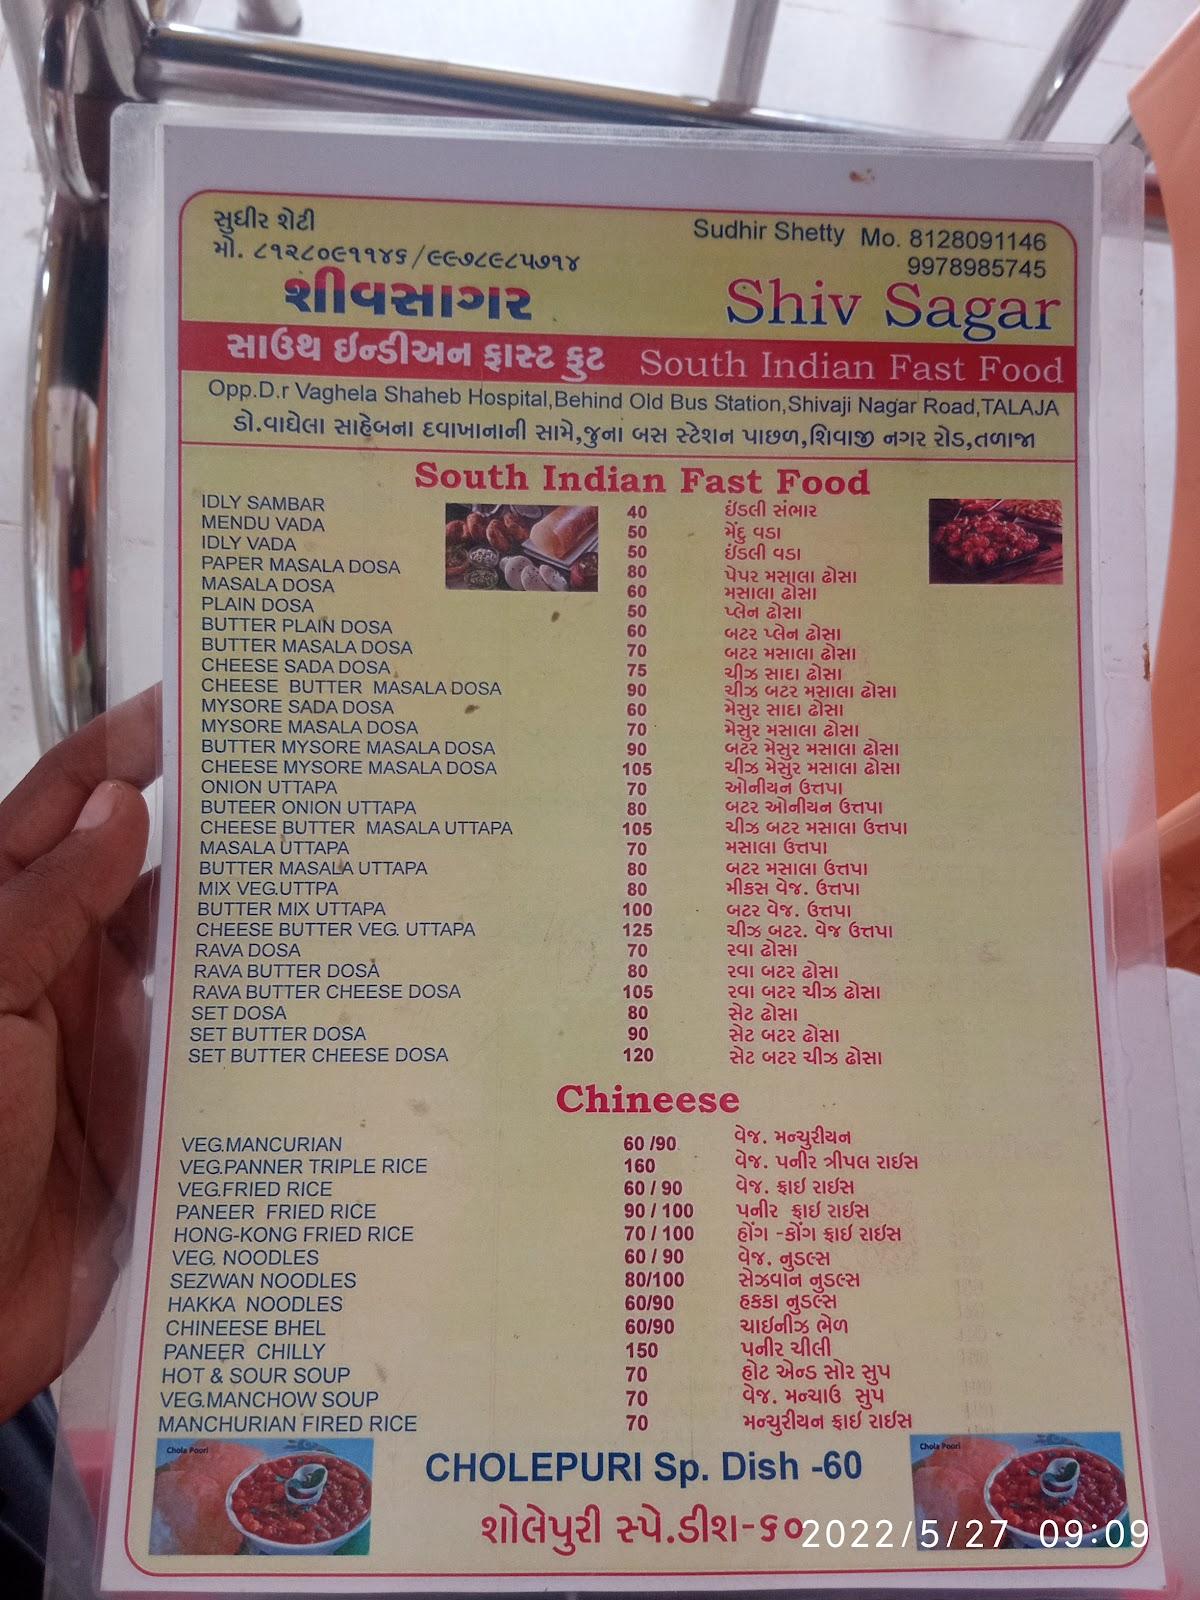 સુધીર શેટી
મો. ૮૧૨૮૦૯૧૧૪૬/૯૯૭૮૯૮૫૭૧૪
Sudhir Shetty Mo. 8128091146
9978985745
શીવસાગર Shiv Sagar
સાઉથ ઇન્ડીઅન ફાસ્ટ ફુટ South Indian Fast Food
Opp.D.r Vaghela Shaheb Hospital,Behind Old Bus Station,Shivaji Nagar Road,TALAJA
ડો.વાઘેલા સાહેબના દવાખાનાની સામે,જુના બસ સ્ટેશન પાછળ,શિવાજી નગર રોડ,તળાજા
South Indian Fast Food
IDLY SAMBAR 40 ઈંડલી સંભાર
MENDU VADA 50 મેંદુ વડા
IDLY VADA 50 ઈંડલી વડા
PAPER MASALA DOSA 80 પેપર મસાલા ઢોસા
MASALA DOSA 60 મસાલા ઢોસા
PLAIN DOSA 50 પ્લેન ઢોસા
BUTTER PLAIN DOSA 60 બટર પ્લેન ઢોસા
BUTTER MASALA DOSA 70 બટર મસાલા ઢોસા
CHEESE SADA DOSA 75 ચીઝ સાદા ઢોસા
CHEESE BUTTER MASALA DOSA 90 ચીઝ બટર મસાલા ઢોસા
MYSORE SADA DOSA 60 મેસુર સાદા ઢોસા
MYSORE MASALA DOSA 70 મેસુર મસાલા ઢોસા
BUTTER MYSORE MASALA DOSA 90 બટર મેસુર મસાલા ઢોસા
CHEESE MYSORE MASALA DOSA 105 ચીઝ મેસુર મસાલા ઢોસા
ONION UTTAPA 70 ઓનીયન ઉત્તપા
BUTEER ONION UTTAPA 80 બટર ઓનીયન ઉત્તપા
CHEESE BUTTER MASALA UTTAPA 105 ચીઝ બટર મસાલા ઉત્તપા
MASALA UTTAPA 70 મસાલા ઉત્તપા
BUTTER MASALA UTTAPA 80 બટર મસાલા ઉત્તપા
MIX VEG.UTTPA 80 મીકસ વેજ. ઉત્તપા
BUTTER MIX UTTAPA 100 બટર વેજ. ઉત્તપા
CHEESE BUTTER VEG. UTTAPA 125 ચીઝ બટર. વેજ ઉત્તપા
RAVA DOSA 70 રવા ઢોસા
RAVA BUTTER DOSA 80 રવા બટર ઢોસા
RAVA BUTTER CHEESE DOSA 105 રવા બટર ચીઝ ઢોસા
SET DOSA 80 સેટ ઢોસા
SET BUTTER DOSA 90 સેટ બટર ઢોસા
SET BUTTER CHEESE DOSA 120 સેટ બટર ચીઝ ઢોસા
Chineese
VEG.MANCURIAN 60 /90 વેજ. મન્ચુરીયન
VEG.PANNER TRIPLE RICE 160 વેજ. પનીર ત્રીપલ રાઈસ
VEG.FRIED RICE 60 / 90 વેજ. ફ્રાઇ રાઈસ
PANEER FRIED RICE 90 / 100 પનીર ફ્રાઇ રાઈસ
HONG-KONG FRIED RICE 70 / 100 હોંગ -કોંગ ફ્રાઇ રાઈસ
VEG. NOODLES 60 / 90 વેજ. નુડલ્સ
SEZWAN NOODLES 80/100 સેઝવાન નુડલ્સ
HAKKA NOODLES 60/90 હકકા નુડલ્સ
CHINEESE BHEL 60/90 ચાઇનીઝ ભેળ
PANEER CHILLY 150 પનીર ચીલી
HOT & SOUR SOUP 70 હોટ એન્ડ સોર સુપ
VEG.MANCHOW SOUP 70 વેજ. મન્ચાઉ સુપ
MANCHURIAN FIRED RICE 70 મન્ચુરીયન ફ્રાઇ રાઈસ
Chola Poori
CHOLEPURI Sp. Dish -60
Chola Poori
શોલેપુરી સ્પે.ડીશ-૬૦
2022/5/27 09:09